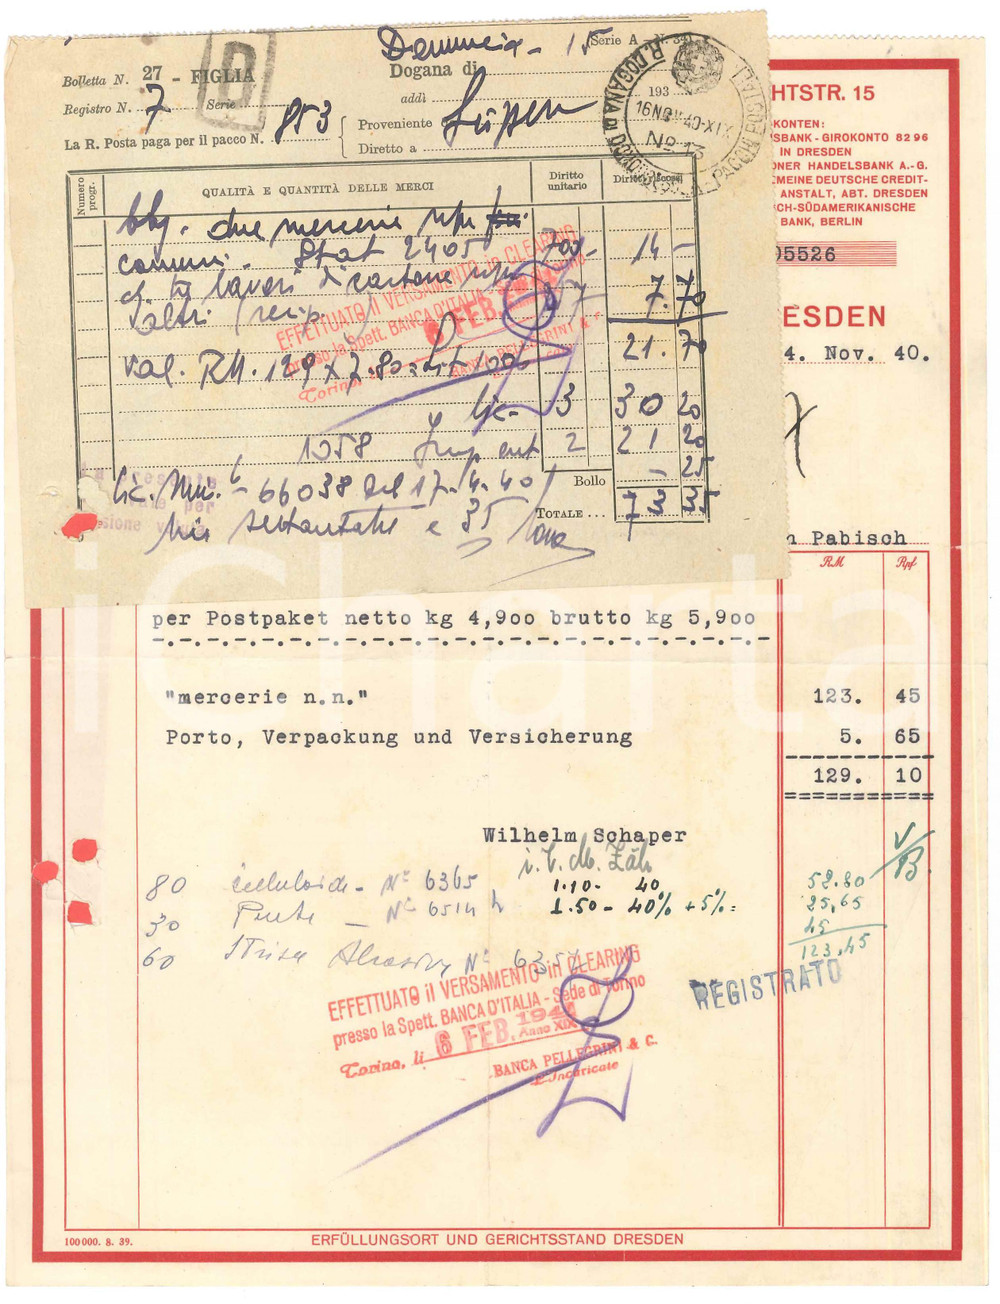 Denuncia - 15 Serie A - N. 3
Bolletta N. 27 - FIGLIA
D
Dogana di
Registro N. 7 Serie
addì 193
La R. Posta paga per il pacco N. 853
Proveniente
Diretto a
R. DOGANA DI
PACCHI POSTALI
16 NOV. 40-XIX
No 13
Numero progr.
QUALITÀ E QUANTITÀ DELLE MERCI
Diritto unitario
Diritti riscossi
due mercerie
comuni. Stat 2405 700 14 -
lavori di cartone
altri recip. 7. 70
21. 70
val. RM. 129 x 7.80
lic. 3 30 20
1058 Imp. ent 2 21 20
- 25
Bollo
Lic. Min. 66038 del 17-4-40
TOTALE . . . 73 35
Lire settantatre e 35
EFFETTUATO il VERSAMENTO in CLEARING
presso la Spett. BANCA D'ITALIA -
FEB.
Torino,
BANCA PELLEGRINI & C.
HTSTR. 15
KONTEN:
SBANK - GIROKONTO 8296
IN DRESDEN
NER HANDELSBANK A.-G.
EMEINE DEUTSCHE CREDIT-
ANSTALT, ABT. DRESDEN
CH-SÜDAMERIKANISCHE
BANK, BERLIN
05526
ESDEN
4. Nov. 40.
n Pabisch
RM Rpf
per Postpaket netto kg 4,900 brutto kg 5,900
"mercerie n.n." 123. 45
Porto, Verpackung und Versicherung 5. 65
129. 10
Wilhelm Schaper
80 celluloide - N° 6365 1.10 - 40 52.80
30 - N° 6514 1.50 - 40% + 5% = 25,65
60 N° 45
123,45
EFFETTUATO il VERSAMENTO in CLEARING
presso la Spett. BANCA D'ITALIA - Sede di Torino
Torino, li 6 FEB. 1941 Anno XIX
BANCA PELLEGRINI & C.
L'Incaricato
REGISTRATO
iCharta
100000. 8. 39.
ERFÜLLUNGSORT UND GERICHTSSTAND DRESDEN